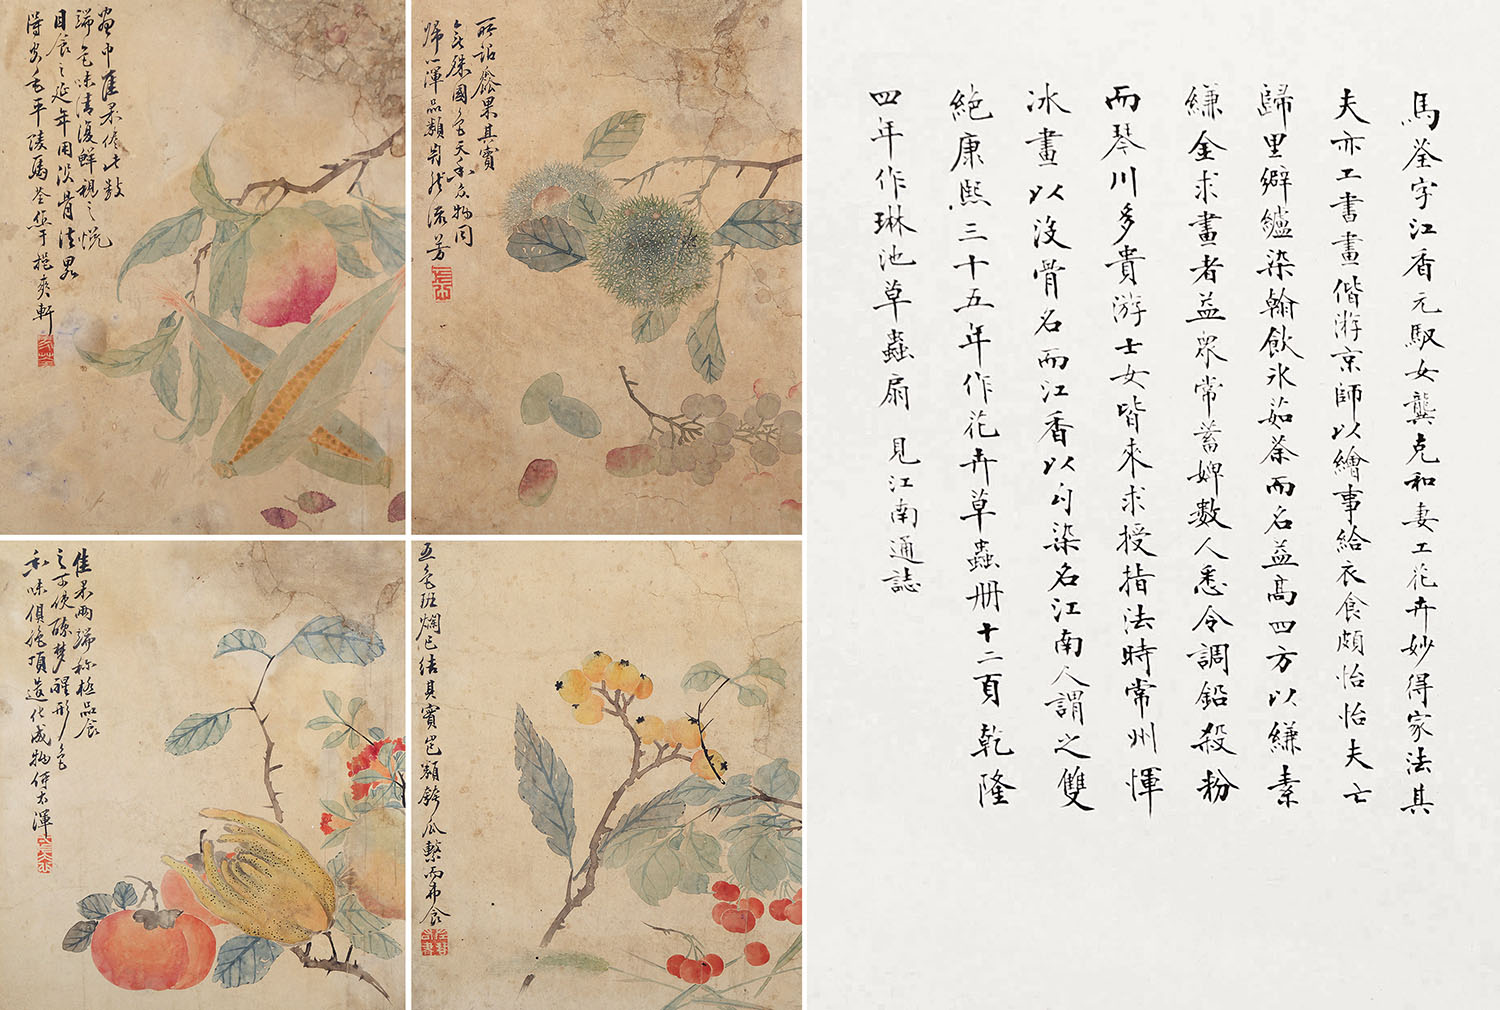 馬荃字江香元馭女龔克和妻工花卉妙得家法其
夫亦工書畫偕游京師以繪事給衣食頗怡怡夫亡
歸里擗纑染翰飲氷茹荼而名益高四方以縑素
縑金求畫者益眾常蓄婢數人悉令調鉛殺粉
而琴川多貴游士女皆來求授指法時常州惲
冰畫以沒骨名而江香以勾染名江南人謂之雙
絕康熙三十五年作花卉草蟲册十二頁乾隆
四年作琳池草蟲扇 見江南通誌
果其實
殊國色天和衆物同
歸一渾品類判然流芳
中佳果修此數
端色味清復鮮視之慌
目食之延年用沒骨法畧
平陵馬荃 于挹爽軒
佳果兩端称極品食
之可使醉夢醒形色
和味俱絕頂造化成物何太渾
五色班斕已結其實豈類匏瓜繫而弗食